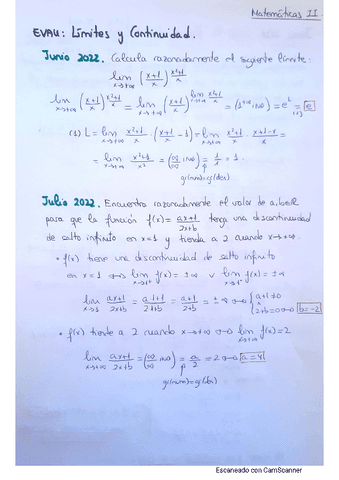 Matemáticas II
EVAU: Límites y Continuidad.
Junio 2022. Calcula razonadamente el siguiente límite:
lim x→+∞ ((x+1)/x)^((x²+1)/x)
lim x→+∞ ((x+1)/x)^((x²+1)/x) = lim x→+∞ ((x+1)/x)^(lim x→+∞ (x²+1)/x) = (1^(+∞) IND) = e^L = (1) e
(1) L = lim x→+∞ (x²+1)/x · ((x+1)/x - 1) = lim x→+∞ (x²+1)/x · (x+1-x)/x =
= lim x→+∞ (x²+1)/x² = (∞/∞ IND) = 1/1 = 1.
gr(num)=gr(den)
Julio 2022. Encuentra razonadamente el valor de a, b∈ℝ
para que la función f(x) = (ax+1)/(2x+b) tenga una discontinuidad
de salto infinito en x=1 y tienda a 2 cuando x→+∞.
• f(x) tiene una discontinuidad de salto infinito
en x=1 ⟺ lim x→1⁺ f(x) = ±∞ ∨ lim x→1⁻ f(x) = ±∞
lim x→1 (ax+1)/(2x+b) = (a·1+1)/(2·1+b) = (a+1)/(2+b) = ±∞ ⟺ { a+1≠0 ∧ 2+b=0 ⟺ b=-2
• f(x) tiende a 2 cuando x→+∞ ⟺ lim x→+∞ f(x) = 2
lim x→+∞ (ax+1)/(2x+b) = (∞/∞ IND) = a/2 = 2 ⟺ a=4
gr(num)=gr(den)
Escaneado con CamScanner